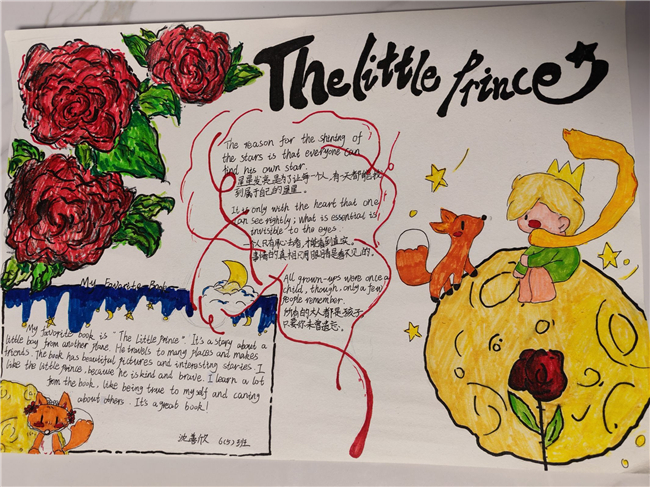 The little Prince
The reason for the shining of
the stars is that everyone can
find his own star.
星星发亮是为了让每一个人有一天都能找
到属于自己的星星。
It is only with the heart that one
can see rightly; what is essential is
invisible to the eyes.
事情的真相只用眼睛是看不见的。
All grown-ups were once a
child, though, only a few
people remember.
所有的大人都是孩子
My Favorite Book
My favorite book is "The Little Prince". It's a story about a
little boy from another plane. He travels to many places and makes
friends. The book has beautiful pictures and interesting stories I
like the little prince, because he is kind and brave. I learn a lot
from the book, like being true to myself and caring
about others. It's a great book!